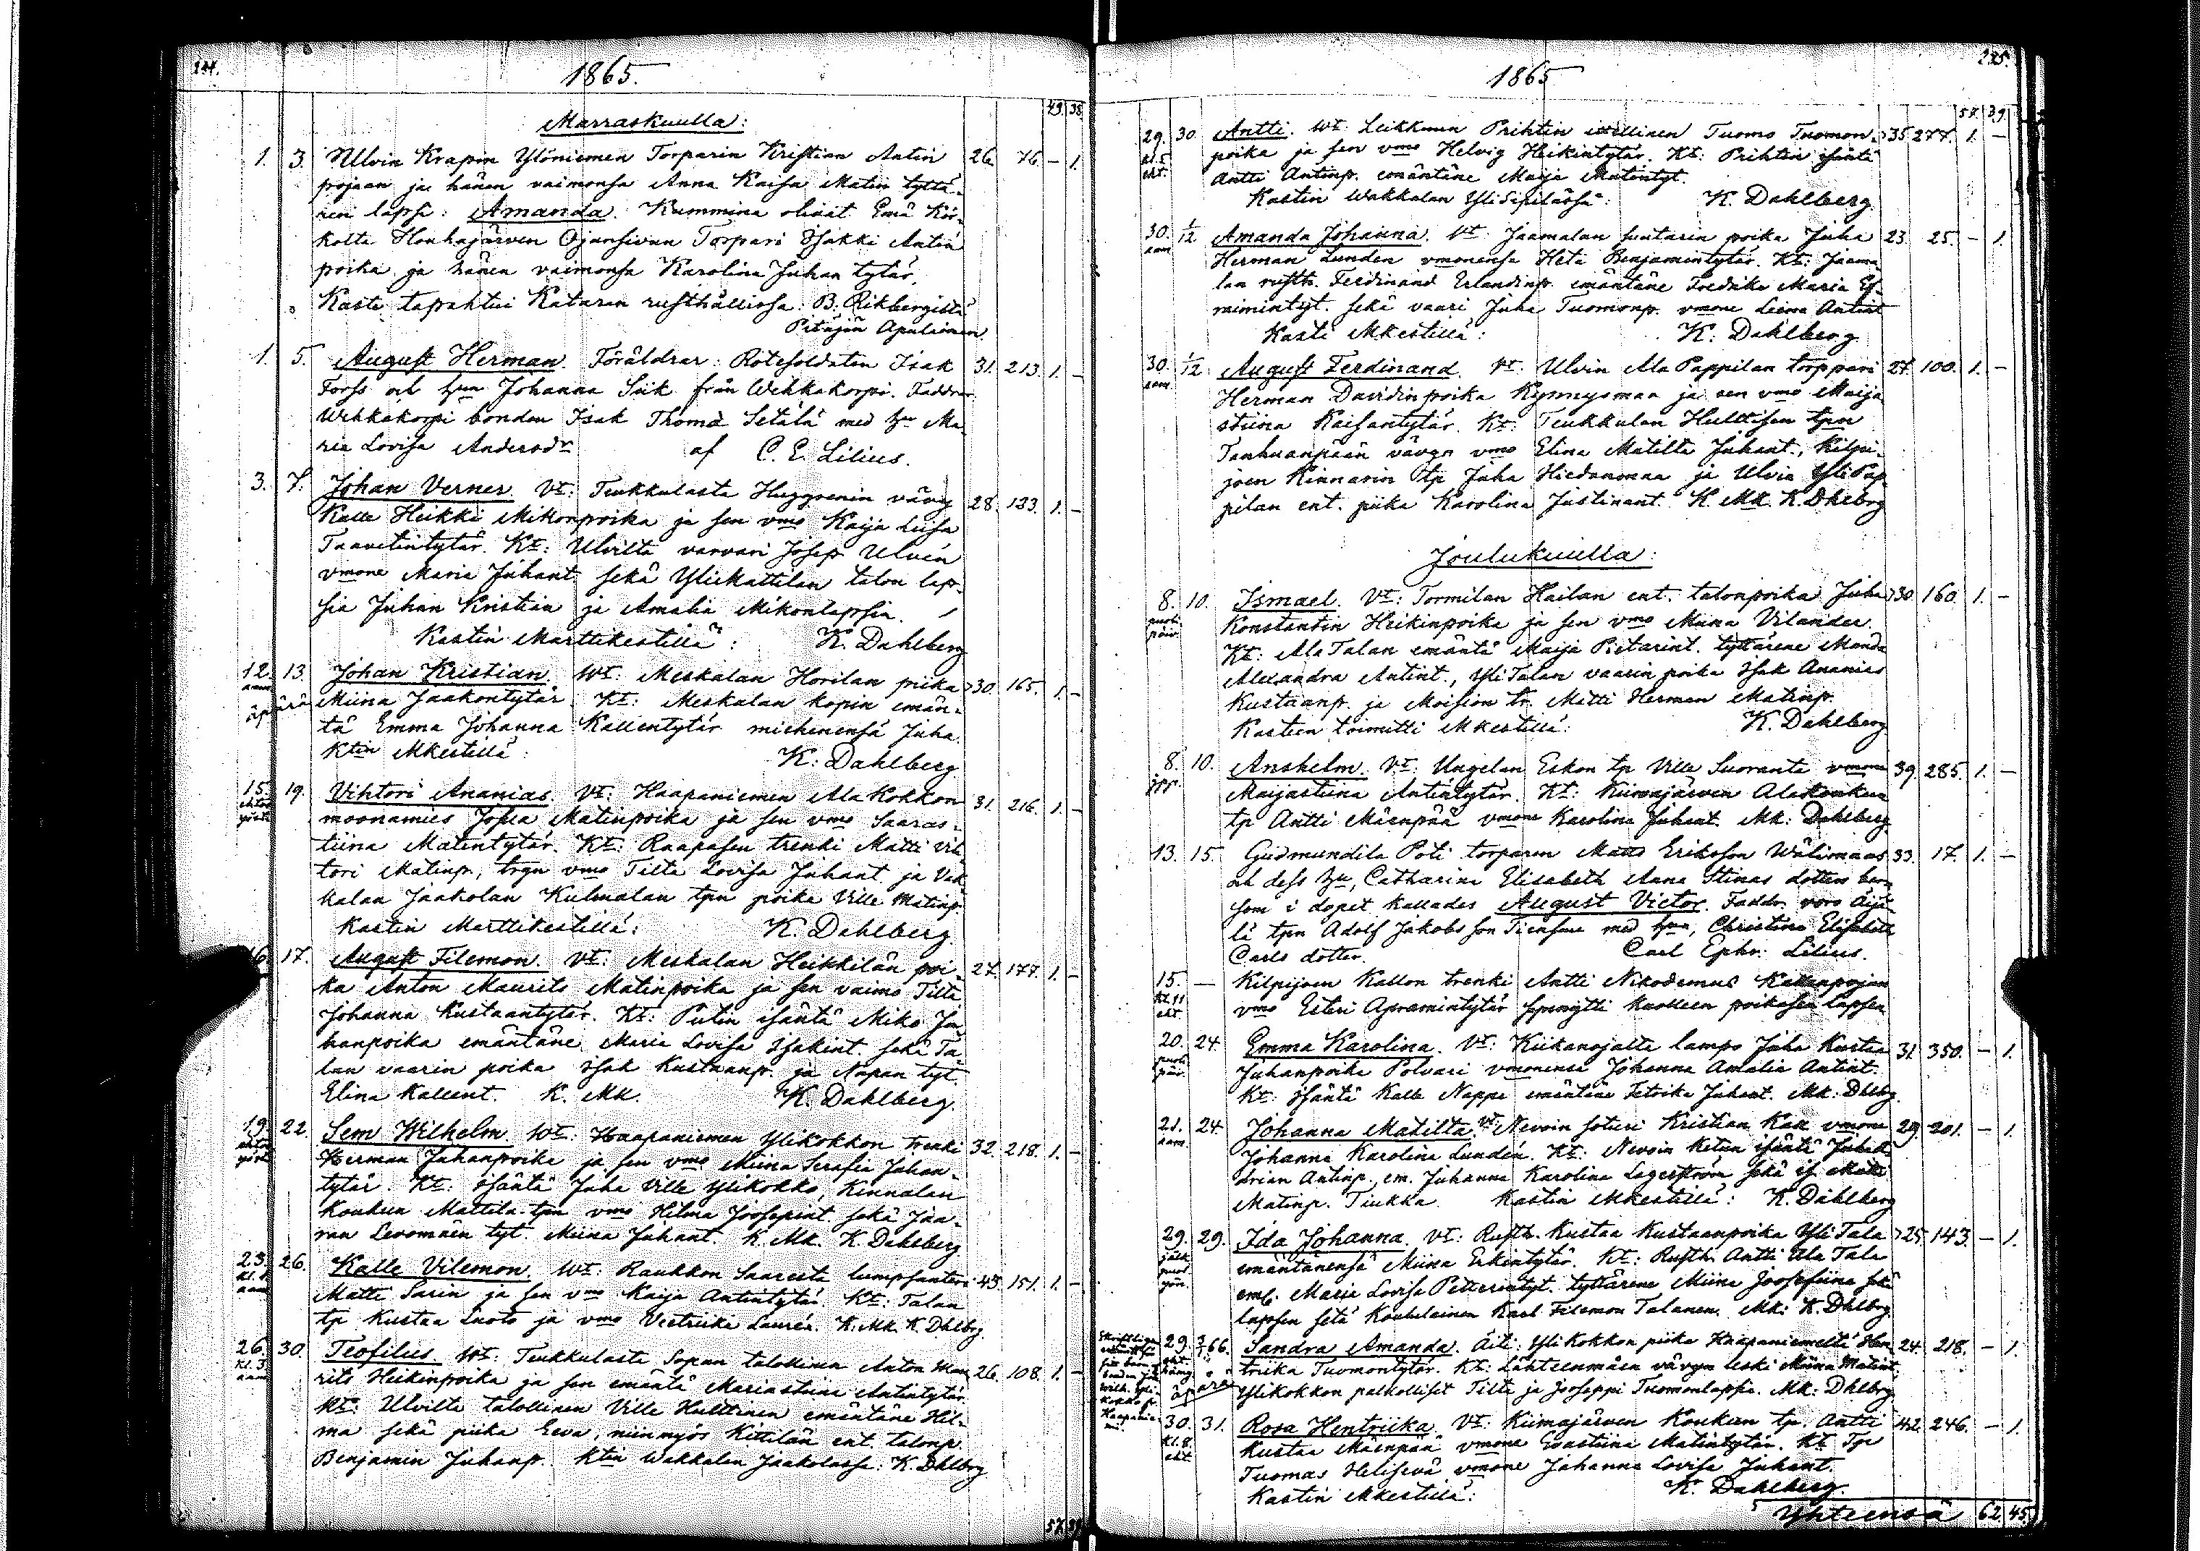 234.
1865.
49. 38.
Marraskuulla:
1. 3. Ulvin Krapin Ylöniemen Torparin Kristian Antin 26. 76. – 1.
pojaan ja hänen vaimonsa Anna Kaisa Matin tyttä-
ren lapsi: Amanda. Kummina olivat Emä Kör-
kolta Honhajärven Ojansivun Torpari Isakki Antin
poika ja hänen vaimonsa Karolina Juhan tytär.
Kaste tapahtui Kataran rusthållissa: B. Rikbergistä
Pitäjän Apulainen.
1. 5. August Herman. Föräldrar: Rotesoldaten Isak 31. 213. 1. –
Torss och hun Johanna Siik från Wehkakorpi. Faddrar
Wehkakorpi bonden Isak Thoma Setälä med hu Ma-
ria Lovisa Andersdr af C. E. Lilius.
3. 7. Johan Verner. Vt: Teukkulasta Huggrenin vävy 28. 133. 1. –
Kalle Heikki Mikonpoika ja sen vmo Kaija Liisa
Taavetintytär. Kt: Ulvilta varvari Josep Ulvén
vmone Maria Juhant. sekä Yliskattilan talon lap-
sia Juhan Kristian ja Amalia Mikonlapsia.
Kastin Marttikestillä: K. Dahlberg
12. 13. Johan Kristian. Wt: Meskalan Horilan piika 30. 165. 1. –
aam
äpärä Miina Jaakontytär. Kt: Meskalan kopin emän-
tä Emma Johanna Kallentytär miehenensä Juha.
Ktin Mkestillä: K. Dahlberg
15. 19. Vihtori Ananias. Vt: Haapaniemen AlaKokkon 31. 216. 1. –
moonamies Josea Matinpoika ja sen vmo Saaras-
tiina Matintytär. Kt: Raapasen trenki Matti Vih
tori Matinp., trgn vmo Tilta Lovisa Juhant. ja Vak
kalan Jaakolan Kulmalan tpn poika Ville Matinp.
Kastin Marttikestillä: K. Dahlberg.
16. 17. August Filemon. Vt: Meskalan Heikkilän poi- 27. 177. 1. –
ka Anton Maurits Matinpoika ja sen vaimo Tilta
Johanna Kustaantytär. Kt: Putin isäntä Miko Ju-
hanpoika emäntäne Maria Lovisa Isakint. sekä Ta-
lan vaarin poika Isak Kustaanp. ja Napan tyt.
Elina Kallent. K. Mk. K. Dahlberg.
19. 22. Sem Wilhelm. Wt: Haapaniemen Ylikokkon trenki 32. 218. 1. –
Herman Juhanpoika ja sen vmo Miina Serafia Juhan-
tytär. Kt. Isäntä Juha Ville Ylikokko, Kinnalan
Koukun Mattila tpn vmo Hilma Joosepint. sekä Jaa-
ran Levomäen tyt. Miina Juhant. K. Mk. K. Dahlberg
23. 26. Kalle Vilemon. Wt: Raukkon Saaresta lumpsantari 43. 151. 1. –
Matte Sarin ja sen vmo Kaija Antintytär. Kt: Talan
tp Kustaa Luoto ja vmo Vestriika Laurén. K. Mk. K. Dhlbrg.
26. 30. Teofilus. Wt: Teukkulasta Sopan talokinen Anton Mau 26. 108. 1. –
kl. 3.
aam
rits Heikinpoika ja sen emäntä Mariastiina Antintytär.
Kt: Ulvilta talollinen Ville Hulttinen emäntäne Hil-
ma sekä piika Eeva, niinmyös Kittilän ent. talonp.
Benjamin Juhanp. Ktin Wakkalan Jaakolassa: K. Dhlbrg
57. 39.
235.
1865
57. 39.
29. 30. Antti. Wt: Leikkuun Prihtin itellinen Tuomo Tuomon- 35. 277. 1. –
kl. 5
eht.
poika ja sen vmo Helvig Heikintytär. Kt: Prihtin isäntä
Antti Antinp. emäntäne Maija Matintyt.
Kastin Wakkalan YliSipilässä: K. Dahlberg.
30. 1/12 Amanda Johanna. Vt: Jaamalan suutarin poika Juha 23. 25. – 1.
aam
Herman Lunden vmonensa Heta Benjamintytär. Kt: Jaama-
lan rusth. Ferdinand Erlandinp. emäntäne Fredrika Maria Ef-
raimintyt. sekä vaari Juha Tuomonp. vmone Leena Antint
Kasti Mkestillä: K. Dahlberg
30. 1/12 August Ferdinand. Vt: Ulvin AlaPappilan torppari 27. 100. 1. –
aam
Herman Davidinpoika Kynnysmaa ja sen vmo Maija
stiina Kaisantytär. Kt: Teukkulan Hulttisen tpn
Tanhuanpään vävyn vmo Elina Matilta Juhant., Kilpi-
joen Kinnarin tp Juha Hiedanmaa ja Ulvin YliPap-
pilan ent. piika Karolina Justinant. K. Mk. K. Dhlbrg
Joulukuulla:
8. 10. Ismael. Vt: Tormilan Hailan ent. talonpoika Juha 30. 160. 1. –
puoli
päiv.
Konstantin Heikinpoika ja sen vmo Miina Vilander.
Kt: AlaTalan emäntä Maija Pietarint. tyttärene Manda
Alexandra Antint., YliTalan vaarin poika Isak Ananias
Kustaanp. ja Moision tr. Matti Herman Matinp.
Kasteen toimitti Mkestillä: K. Dahlberg
8. 10. Anshelm. Vt: Ungelan Eskon tp Ville Suoranta vmone 39. 285. 1. –
Maijastiina Antintytär. Kt: Kiimajärven Alaskoukun
tp Antti Mäenpää vmone Karolina Juhant. Mk: Dahlberg
13. 15. Gudmundila Poti torparen Matts Eriksson Wälimaas 33. 17. 1. –
och dess hu, Catharina Elisabeth Anna Stinas dotters barn
som i dopet kallades August Victor. Faddr. voro Äijä-
lä tpn Adolf Jakobsson Tiensuu med hu, Christina Elisabeth
Carls dotter. Carl Ephr. Lilius.
15. – Kilpijoen Kallon trenki Antti Nikodemus Kallenpojan
kl. 11
eht
vmo Esteri Apramintytär synnytti kuolleen poikasen lapsen
20. 24. Emma Karolina. Vt: Kiikanojalta lampo Juha Kustaa 31. 350. – 1.
puoli
päiv.
Juhanpoika Polvari vmonensa Johanna Amalia Antint.
Kt: Isäntä Kalle Nappi emäntäne Fetrika Juhant. Mk: Dhlbg
21. 24. Johanna Matilta. Wt: Nevoin soturi Kristian Kan vmone 29. 201. – 1.
aam.
Johanna Karolina Lundén. Kt: Nevoin Ketun isäntä Juha A-
drian Antinp., em. Juhanna Karolina Lagerström sekä is. Matti
Matinp. Tiukka. Kastin Mkestillä: K. Dahlberg
29. 29. Ida Johanna. Vt: Rusth. Kustaa Kustaanpoika YliTala 25. 143. – 1.
emäntänensä Miina Erkintytär. Kt: Rusth. Antti AlaTala
em. Maria Lovisa Petterintyt. tyttärene Miina Joosefiina sekä
lapsen setä Koululainen Karl Filemon Talanen. Mk: K. Dhlbrg
29. 3/1 66. Sandra Amanda. Äiti: Ylikokkon piika Haapaniemeltä Hen 24. 218. – 1.
äpärä
triika Tuomontytär. Kt: Lähteenmäen vävyn leski Miina Matint,
Ylikokkon palkolliset Tilta ja Jooseppi Tuomonlapsia. Mk: Dhlbrg
30. 31. Rosa Hentriika. Vt: Kiimajärven Koukun tp. Antti 42. 246. – 1.
kl. 8.
eht.
Kustaa Mäenpää vmone Evastiina Matintytär. Kt: Tp
Tuomas Helisevä vmone Johanna Lovisa Juhant.
Kastin Mkestillä: K. Dahlberg.
Yhteensä 62. 45.